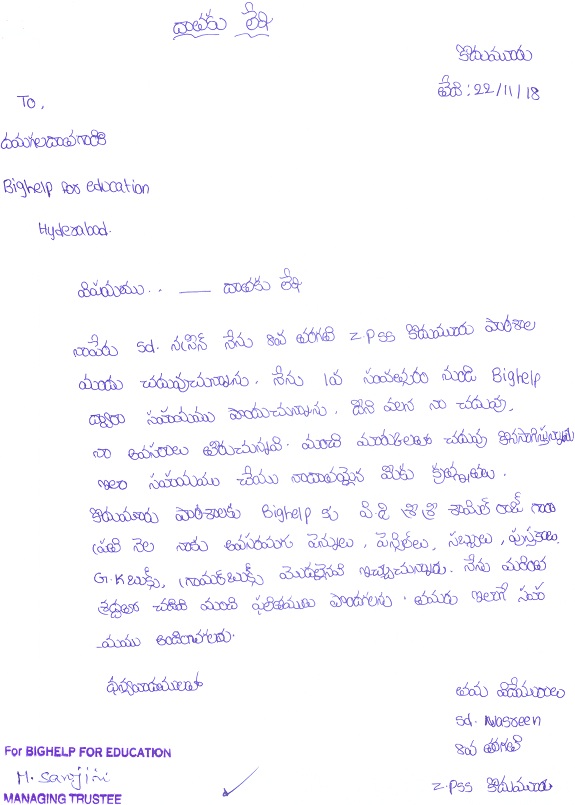 దాతకు లేఖ
కొడుమూరు
తేది : 22/11/18
To,
దయగలదాతగారికి
Bighelp for education
Hyderabad.
విషయము.. — దాతకు లేఖ
నాపేరు Sd. నస్రీన్ నేను 8వ తరగతి Z.PSS కొడుమూరు పాఠశాల
యందు చదువుచున్నాను. నేను 1వ సంవత్సరం నుండి Bighelp
ద్వారా సహాయము పొందుచున్నాను. దీని వలన నా చదువు,
నా అవసరాలు తీరుచున్నవి. మంచి మార్కులతో చదువు కొనసాగిస్తున్నాను
ఇలా సహాయము చేయు నాదాతయైన మీకు కృతజ్ఞతలు.
కొడుమూరు పాఠశాలకు Bighelp కు వి.ది శ్రీ శ్రీ శామేల్ రాజ్ గారు
ప్రతి నెల నాకు అవసరమగు పెన్నులు, పెన్సిల్‌లు, సబ్బులు, పుస్తకాలు,
G.K బుక్స్, గ్రామర్ బుక్స్ మొదలైనవి ఇచ్చుచున్నారు. నేను మరింత
శ్రద్ధతో చదివి మంచి ఫలితములు పొందగలను. తమరు ఇలాగే సహా
యము అందించగలరు.
ధన్యవాదములతో
తమ విధేయురాలు
Sd. Nasreen
8వ తరగతి
Z.PSS కొడుమూరు
For BIGHELP FOR EDUCATION
H. Sarojini
MANAGING TRUSTEE